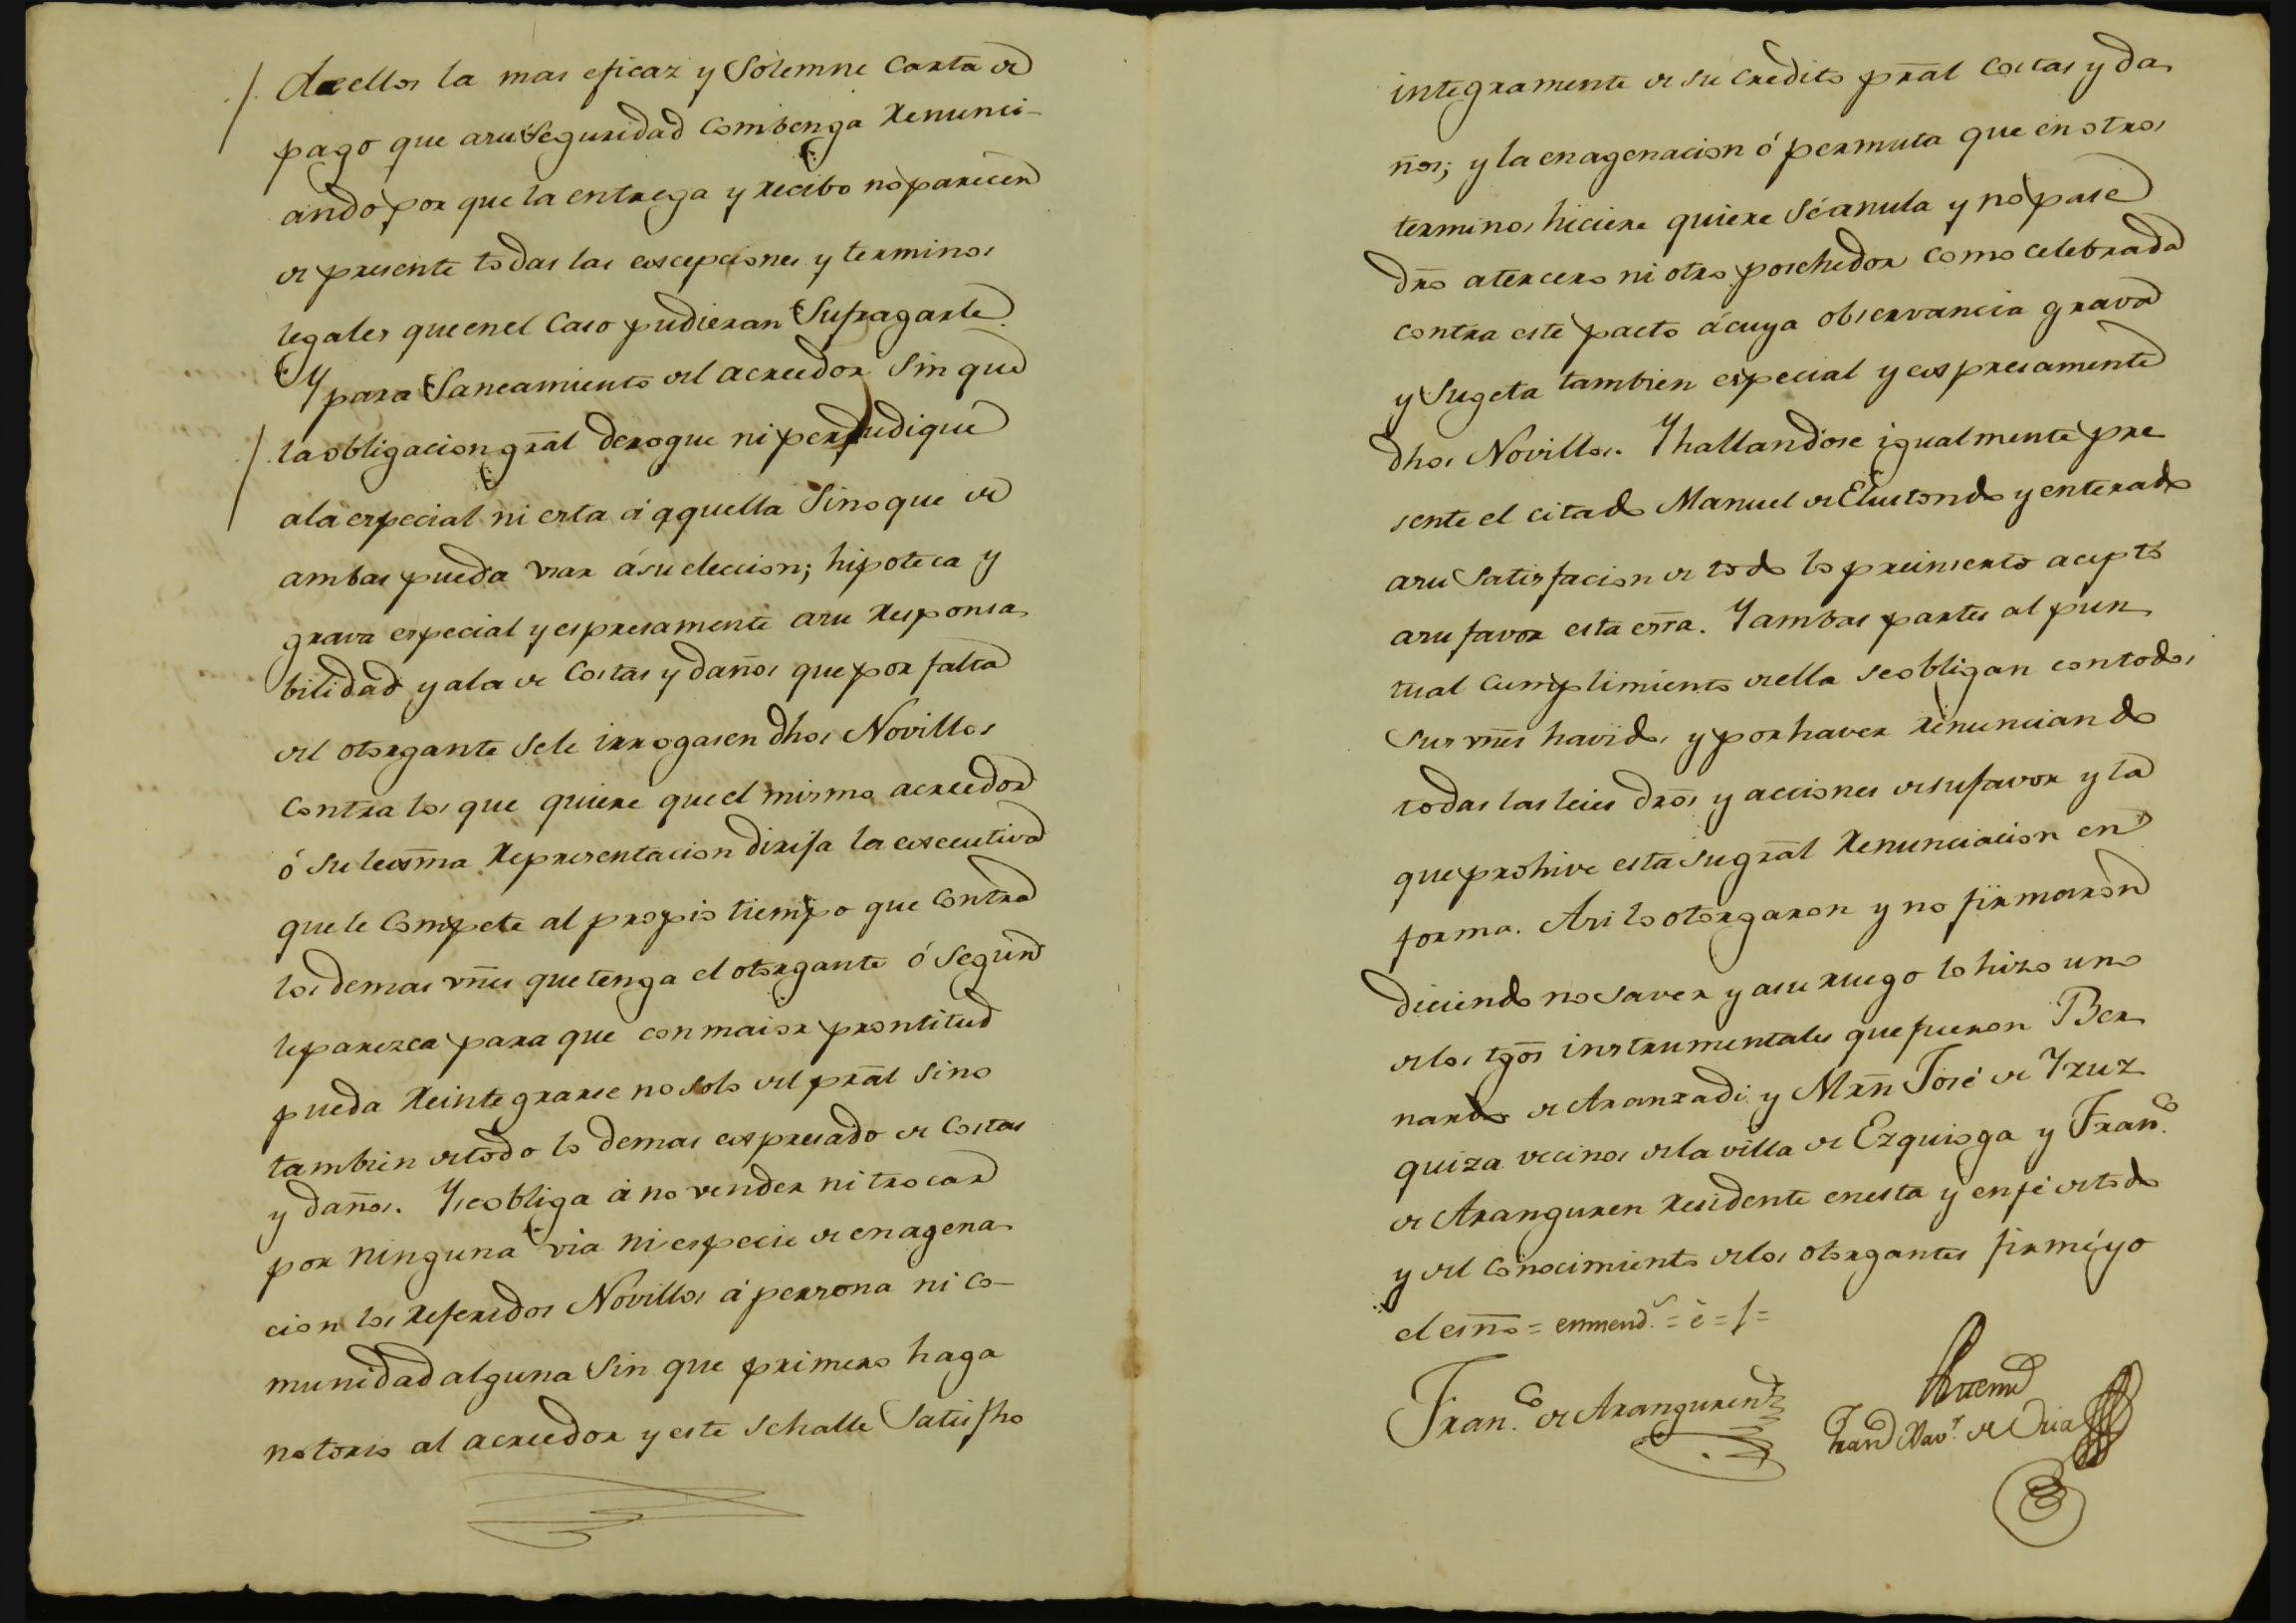 de ellos la mas eficaz y Solemne Carta de
pago que a su Seguridad combenga Renunci-
ando por que la entrega y recibo no parecen
de presente todas las excepciones y terminos
legales que en el Caso pudieran Sufragarle
Y para Saneamiento del acreedor Sin que
la obligacion grāl derogue ni perjudique
a la especial ni esta á aquella Sino que de
ambas pueda usar á su eleccion; hipoteca y
grava especial y espresamente a su Responsa
bilidad y a la de Costas y daños que por falta
del otorgante se le irrogasen dhos Novillos
Contra los que quiere que el mismo acreedor
ó su lexm̄a Representacion dirija la executiva
que le Compete al propio tiempo que Contra
los demas vn̄es que tenga el otorgante ó Segun
le parezca para que con maior prontitud
pueda Reintegrarse no solo del prāl sino
tambien de todo lo demas expresado de Costas
y daños. Y se obliga á no vender ni trocar
por ninguna via ni especie de enagena
cion los Referidos Novillos á persona ni co-
munidad alguna Sin que primero haga
notorio al acreedor y este se halle Satisfho
integramente de su Credito prāl Costas y da
ños; y la enagenacion ó permuta que en otros
terminos hiciere quiere Séa nula y no pase
dr̄o a tercero ni otro poschedor como celebrada
contra este pacto á cuya observancia grava
y Sugeta tambien especial y expresamente
dhos Novillos. Y hallandose igualmente pre
sente el citado Manuel de Elustondo y enterado
a su Satisfacion de todo lo preinserto aceptó
a su favor esta esr̄a. Y ambas partes al pun
tual Cumplimiento de ella se obligan con todos
Sus vn̄es havidos y por haver Renunciando
todas las leies dr̄os y acciones de su favor y la
que prohive esta su grāl Renunciacion en
forma. Asi lo otorgaron y no firmaron
diciendo no saver y a su ruego lo hizo uno
de los tgōs instrumentales que fueron Ber
nardo de Aranzadi y Mrn̄ José de Yruz
quiza vecinos de la villa de Ezquioga y Fran.co
de Aranguren Residente en esta y en fé de todo
y del Conocimiento de los otorgantes firmé yo
el esn̄o = enmend.s = é = j =
Fran.co de Aranguren
Antemi
Fran Xav.r de Oria